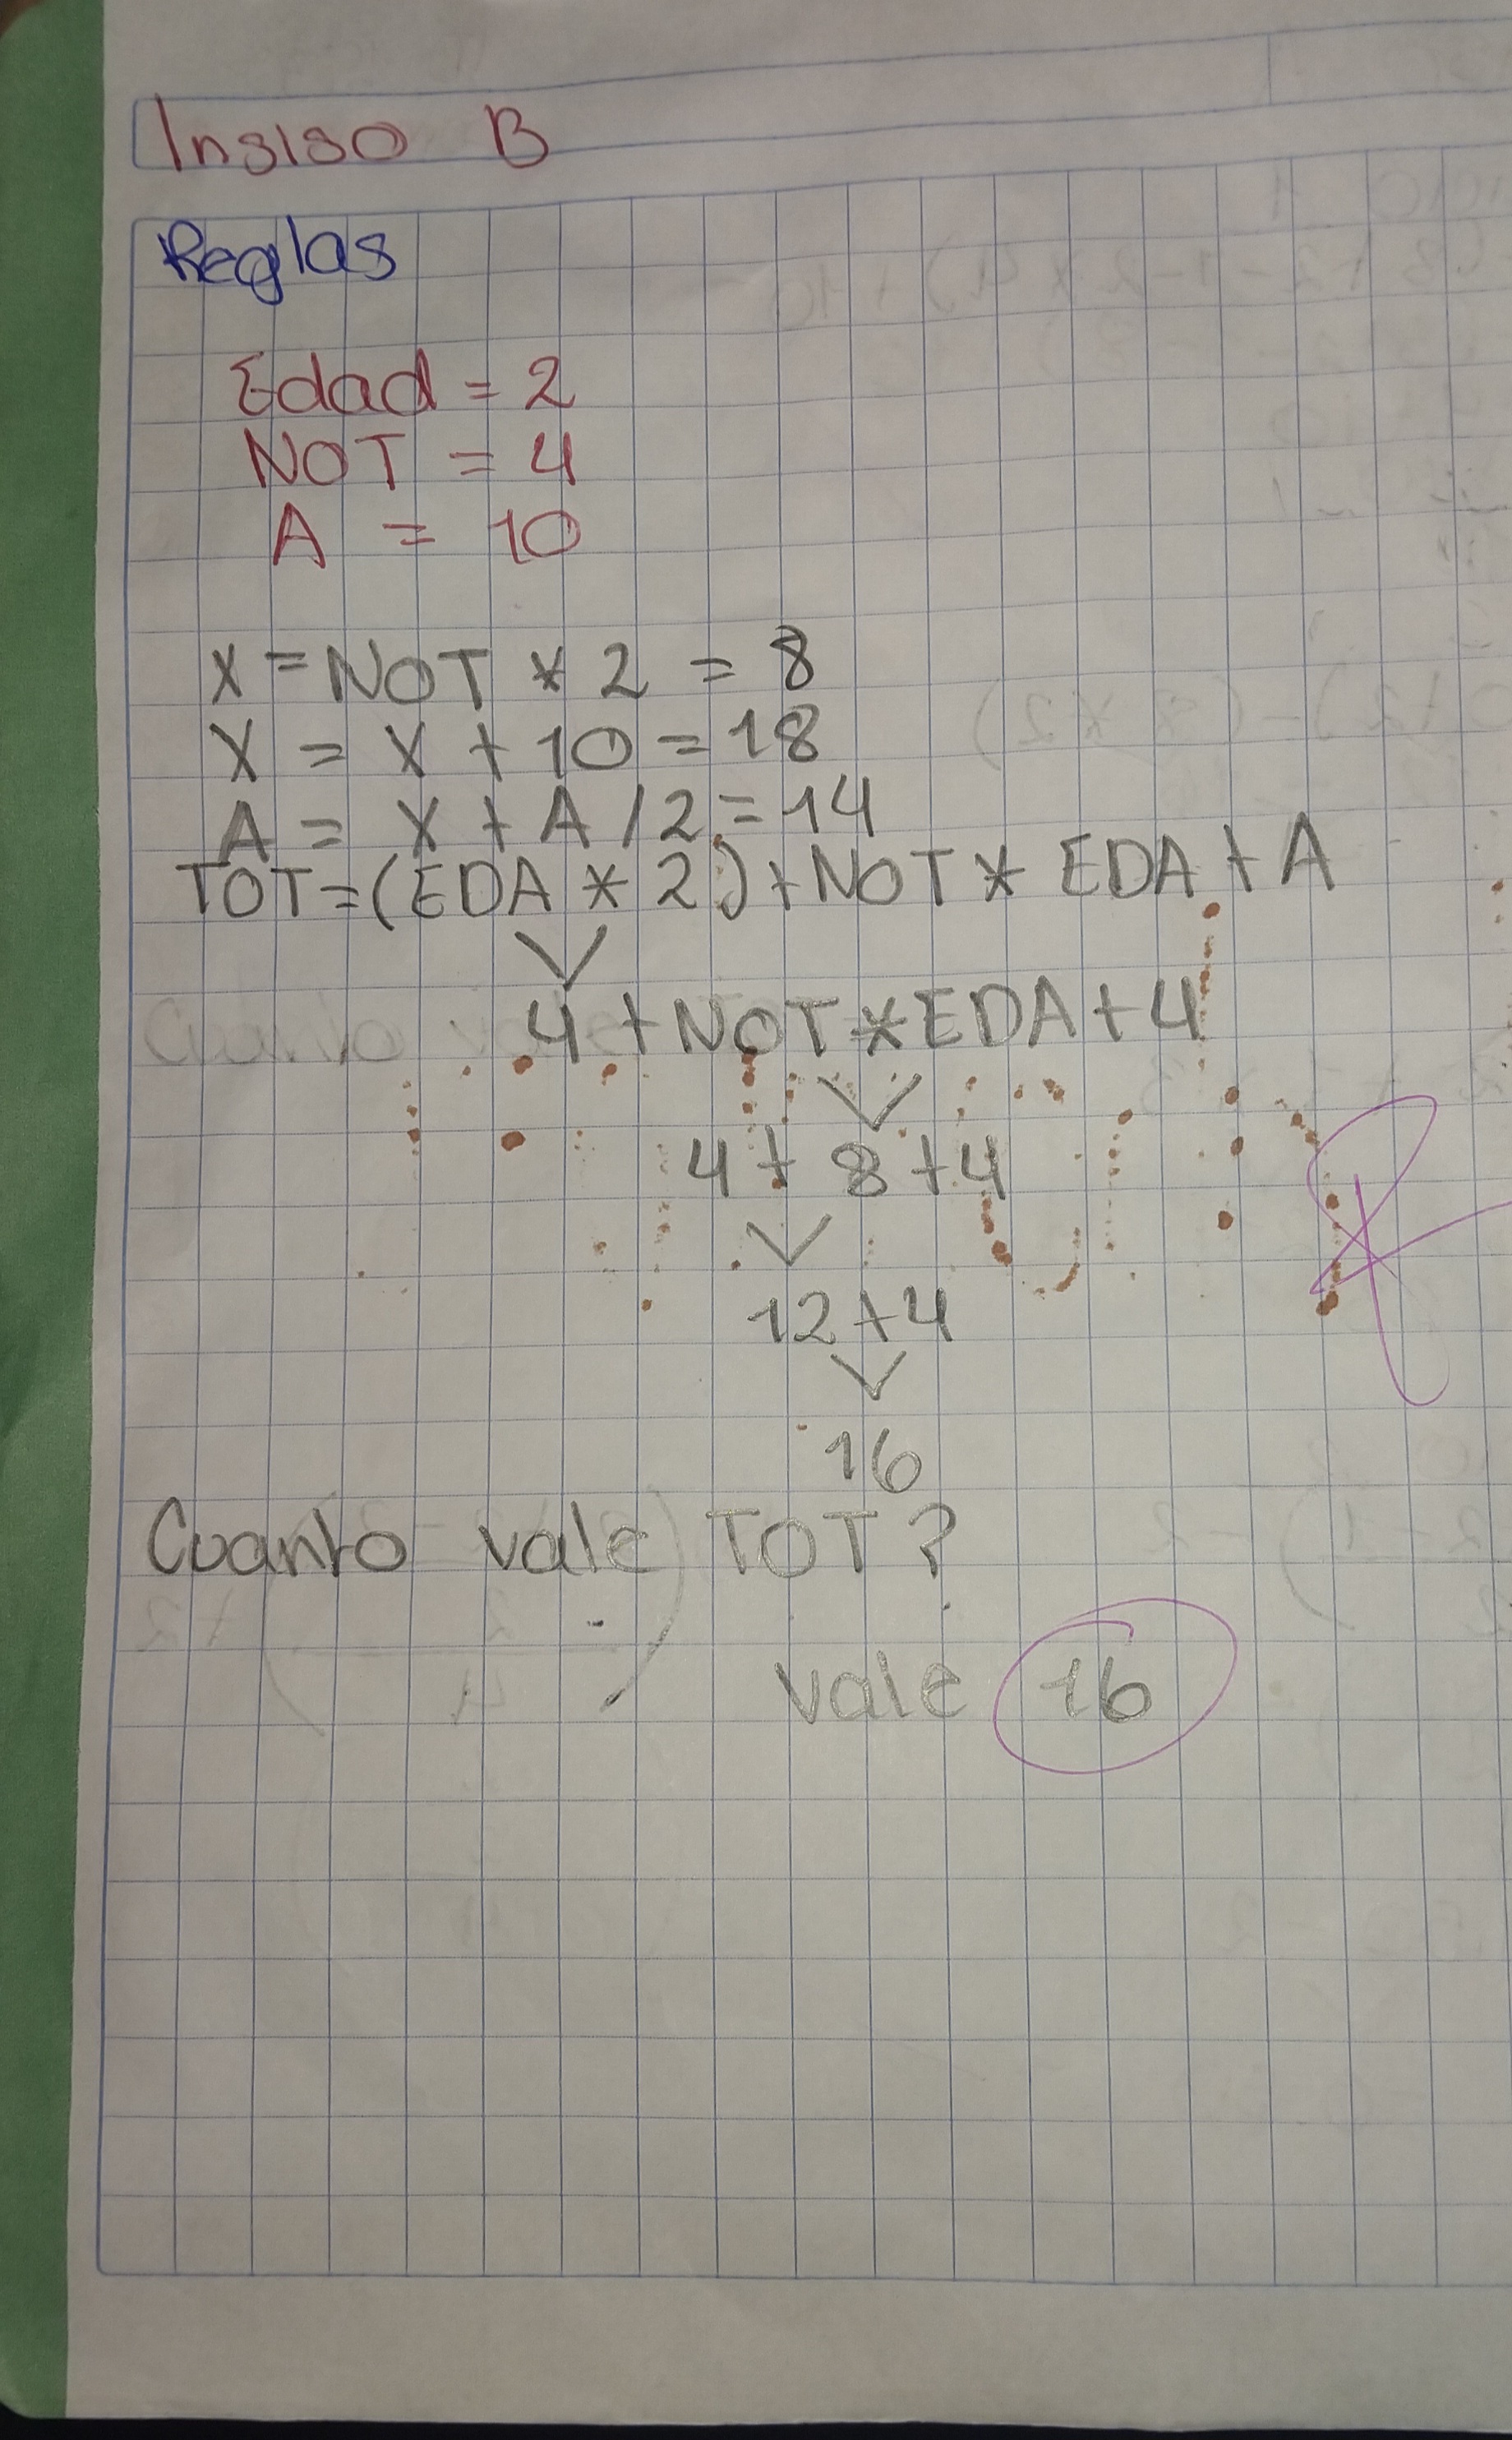 Insiso B
Reglas
Edad = 2
NOT = 4
A = 10
X = NOT * 2 = 8
X = X + 10 = 18
A = X + A / 2 = 14
TOT = (EDA * 2) + NOT * EDA + A
4 + NOT * EDA + 4
4 + 8 + 4
12 + 4
16
Cuanto vale TOT?
vale 16